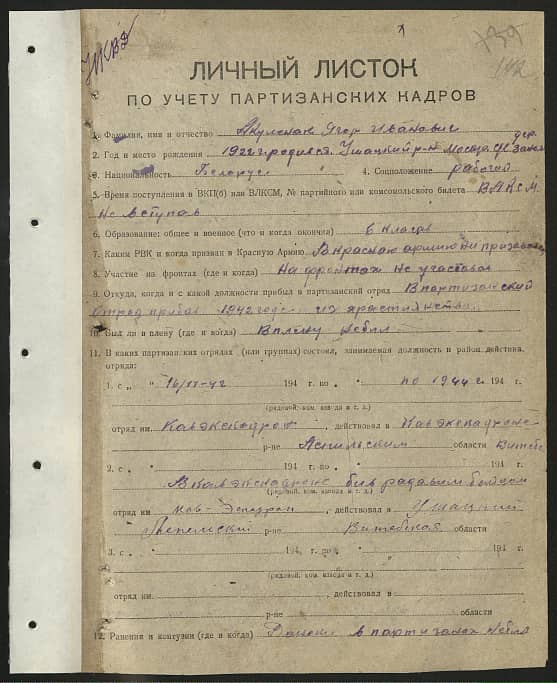 НКВД
739
142
ЛИЧНЫЙ ЛИСТОК
ПО УЧЕТУ ПАРТИЗАНСКИХ КАДРОВ
1. Фамилия, имя и отчество Ягор Иванович
2. Год и место рождения 1922 г родился. Ушацкий р-н дер.
3. Национальность Беларус 4. Соцположение рабочий
5. Время поступления в ВКП(б) или ВЛКСМ, № партийного или комсомольского билета ВЛКСМ
не вступав
6. Образование: общее и военное (что и когда окончил) 6 класов
7. Каким РВК и когда призван в Красную Армию В красною армию ни призывался
8. Участие на фронтах (где и когда) На фронтах не участвовал
9. Откуда, когда и с какой должности прибыл в партизанский отряд В партизанский
отряд прибыл 1942 году из
10. Был ли в плену (где и когда) В плену небыл
11. В каких партизанских отрядах (или группах) состоял, занимаемая должность и район действия.
отряда:
1. с „ “ 16/II-42 194 г. по „ “ по 1944 г. 194 г.
(рядовой, ком. взвода и т. д.)
отряд им. Кавэскадрон, действовал в Кавэскадроне
р-не области Витебс
2. с „ “ 194 г. по „ “ 194 г.
В кавэскадроне был радавым бойцом
(рядовой, ком. взвода и т. д.)
отряд им. кав-эскадрон, действовал в Ушацкий
Лепельский р-не Витебская области
3. с „ “ 194 г. по „ “ 194 г.
(рядовой, ком. взвода и т. д.)
отряд им. , действовал в
р-не области
12. Ранения и контузии (где и когда) в партизанах небыл